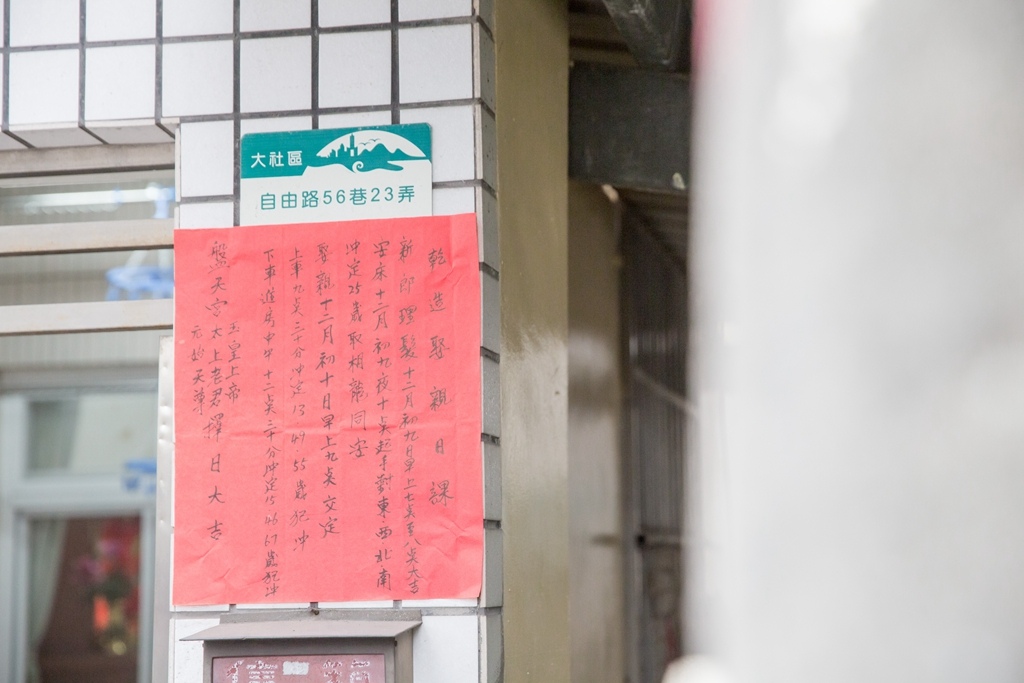 大社區
自由路56巷23弄
乾造娶親日課
新郎理髮十二月初九日早上七点至八点大吉
安床十二月初九夜十点起手對東西北南
沖定25歲取胡龍同安
娶親十二月初十日早上九点交定
上車九点三十分沖定13 49 55歲犯沖
下車進房中午十二点三十分沖定15 46 67歲犯沖
玉皇上帝
盤天宮太上老君擇日大吉
元始天尊